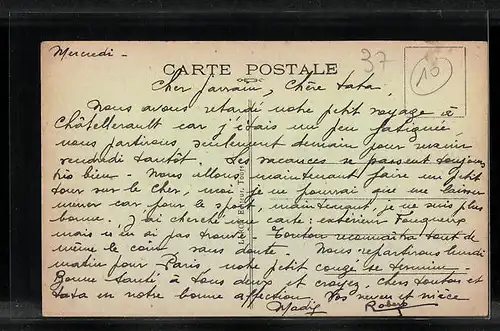 Mercredi -
37
CARTE POSTALE
10
Cher parrain, Chère tata.
Nous avons retardé notre petit voyage à
Châtellerault car j'étais un peu fatiguée
nous partirons seulement demain pour revenir
vendredi tantôt. Les vacances se passent toujours
très bien - Nous allons maintenant faire un petit
tour sur le Cher, moi je ne pourrai que me laisser
mener car pour le sport, maintenant, je ne suis plus
bonne. J'ai cherché une carte: intérieur Fougueray
mais n'en ai pas trouvé. Tonton reconnaîtra tout de
même le coin sans doute. Nous repartirons lundi
matin pour Paris, notre petit congé se termine -
Bonne santé à tous deux et croyez, chers tonton et
tata en notre bonne affection. Vos neveu et nièce
Madig Robert